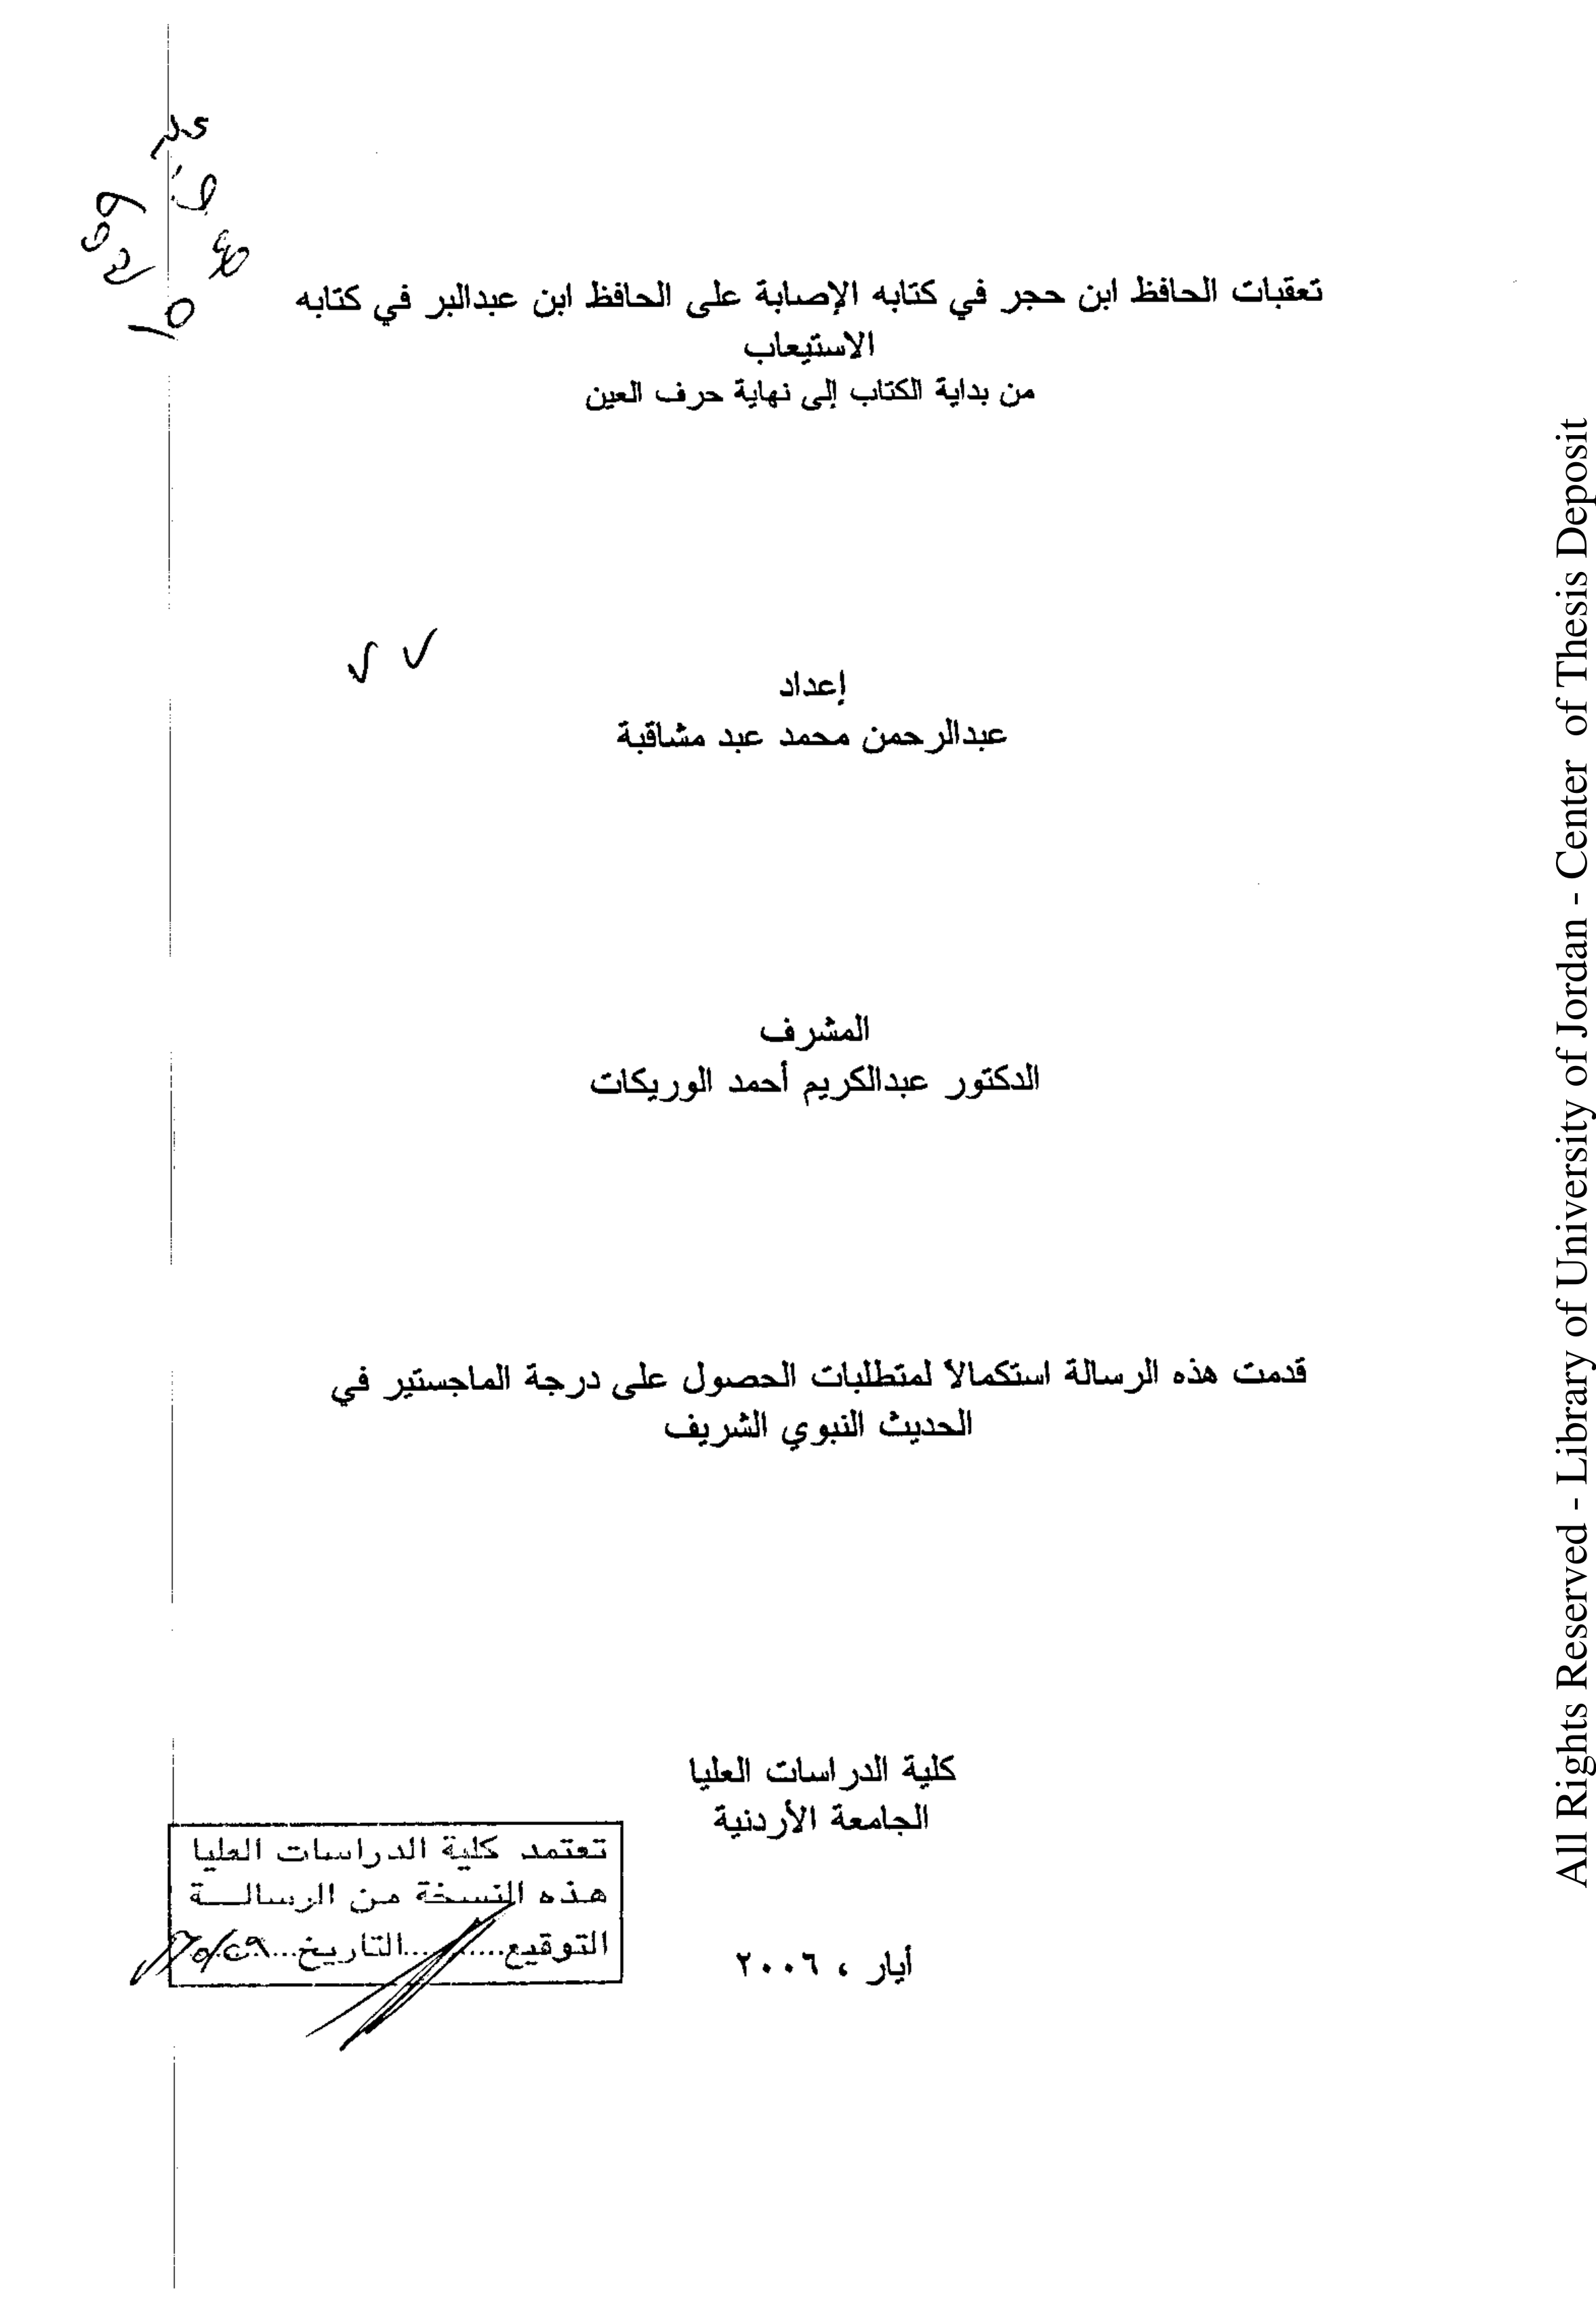 تعقبات الحافظ ابن حجر في كتابه الإصابة على الحافظ ابن عبدالبر في كتابه
الاستيعاب
من بداية الكتاب إلى نهاية حرف العين
إعداد
عبدالرحمن محمد عبد مشاقبة
المشرف
الدكتور عبدالكريم أحمد الوريكات
قدمت هذه الرسالة استكمالاً لمتطلبات الحصول على درجة الماجستير في
الحديث النبوي الشريف
كلية الدراسات العليا
الجامعة الأردنية
أيار ، ٢٠٠٦
تعتمد كلية الدراسات العليا
هذه النسخة من الرسالــة
التوقيع..........التاريخ...
All Rights Reserved - Library of University of Jordan - Center of Thesis Deposit